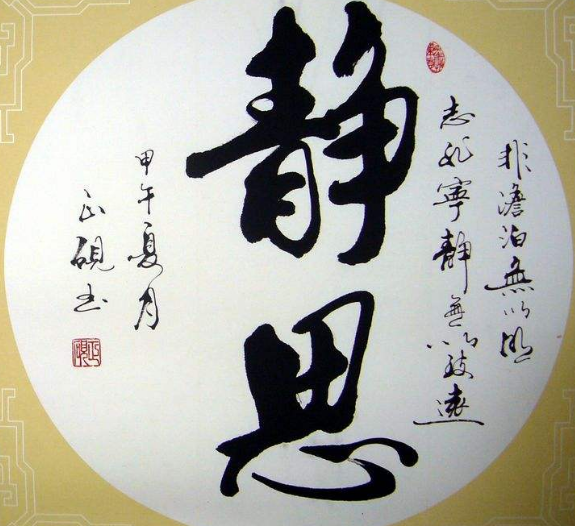 静思
非澹泊無以明
志非寧静無以致遠
甲午夏月
正硯书